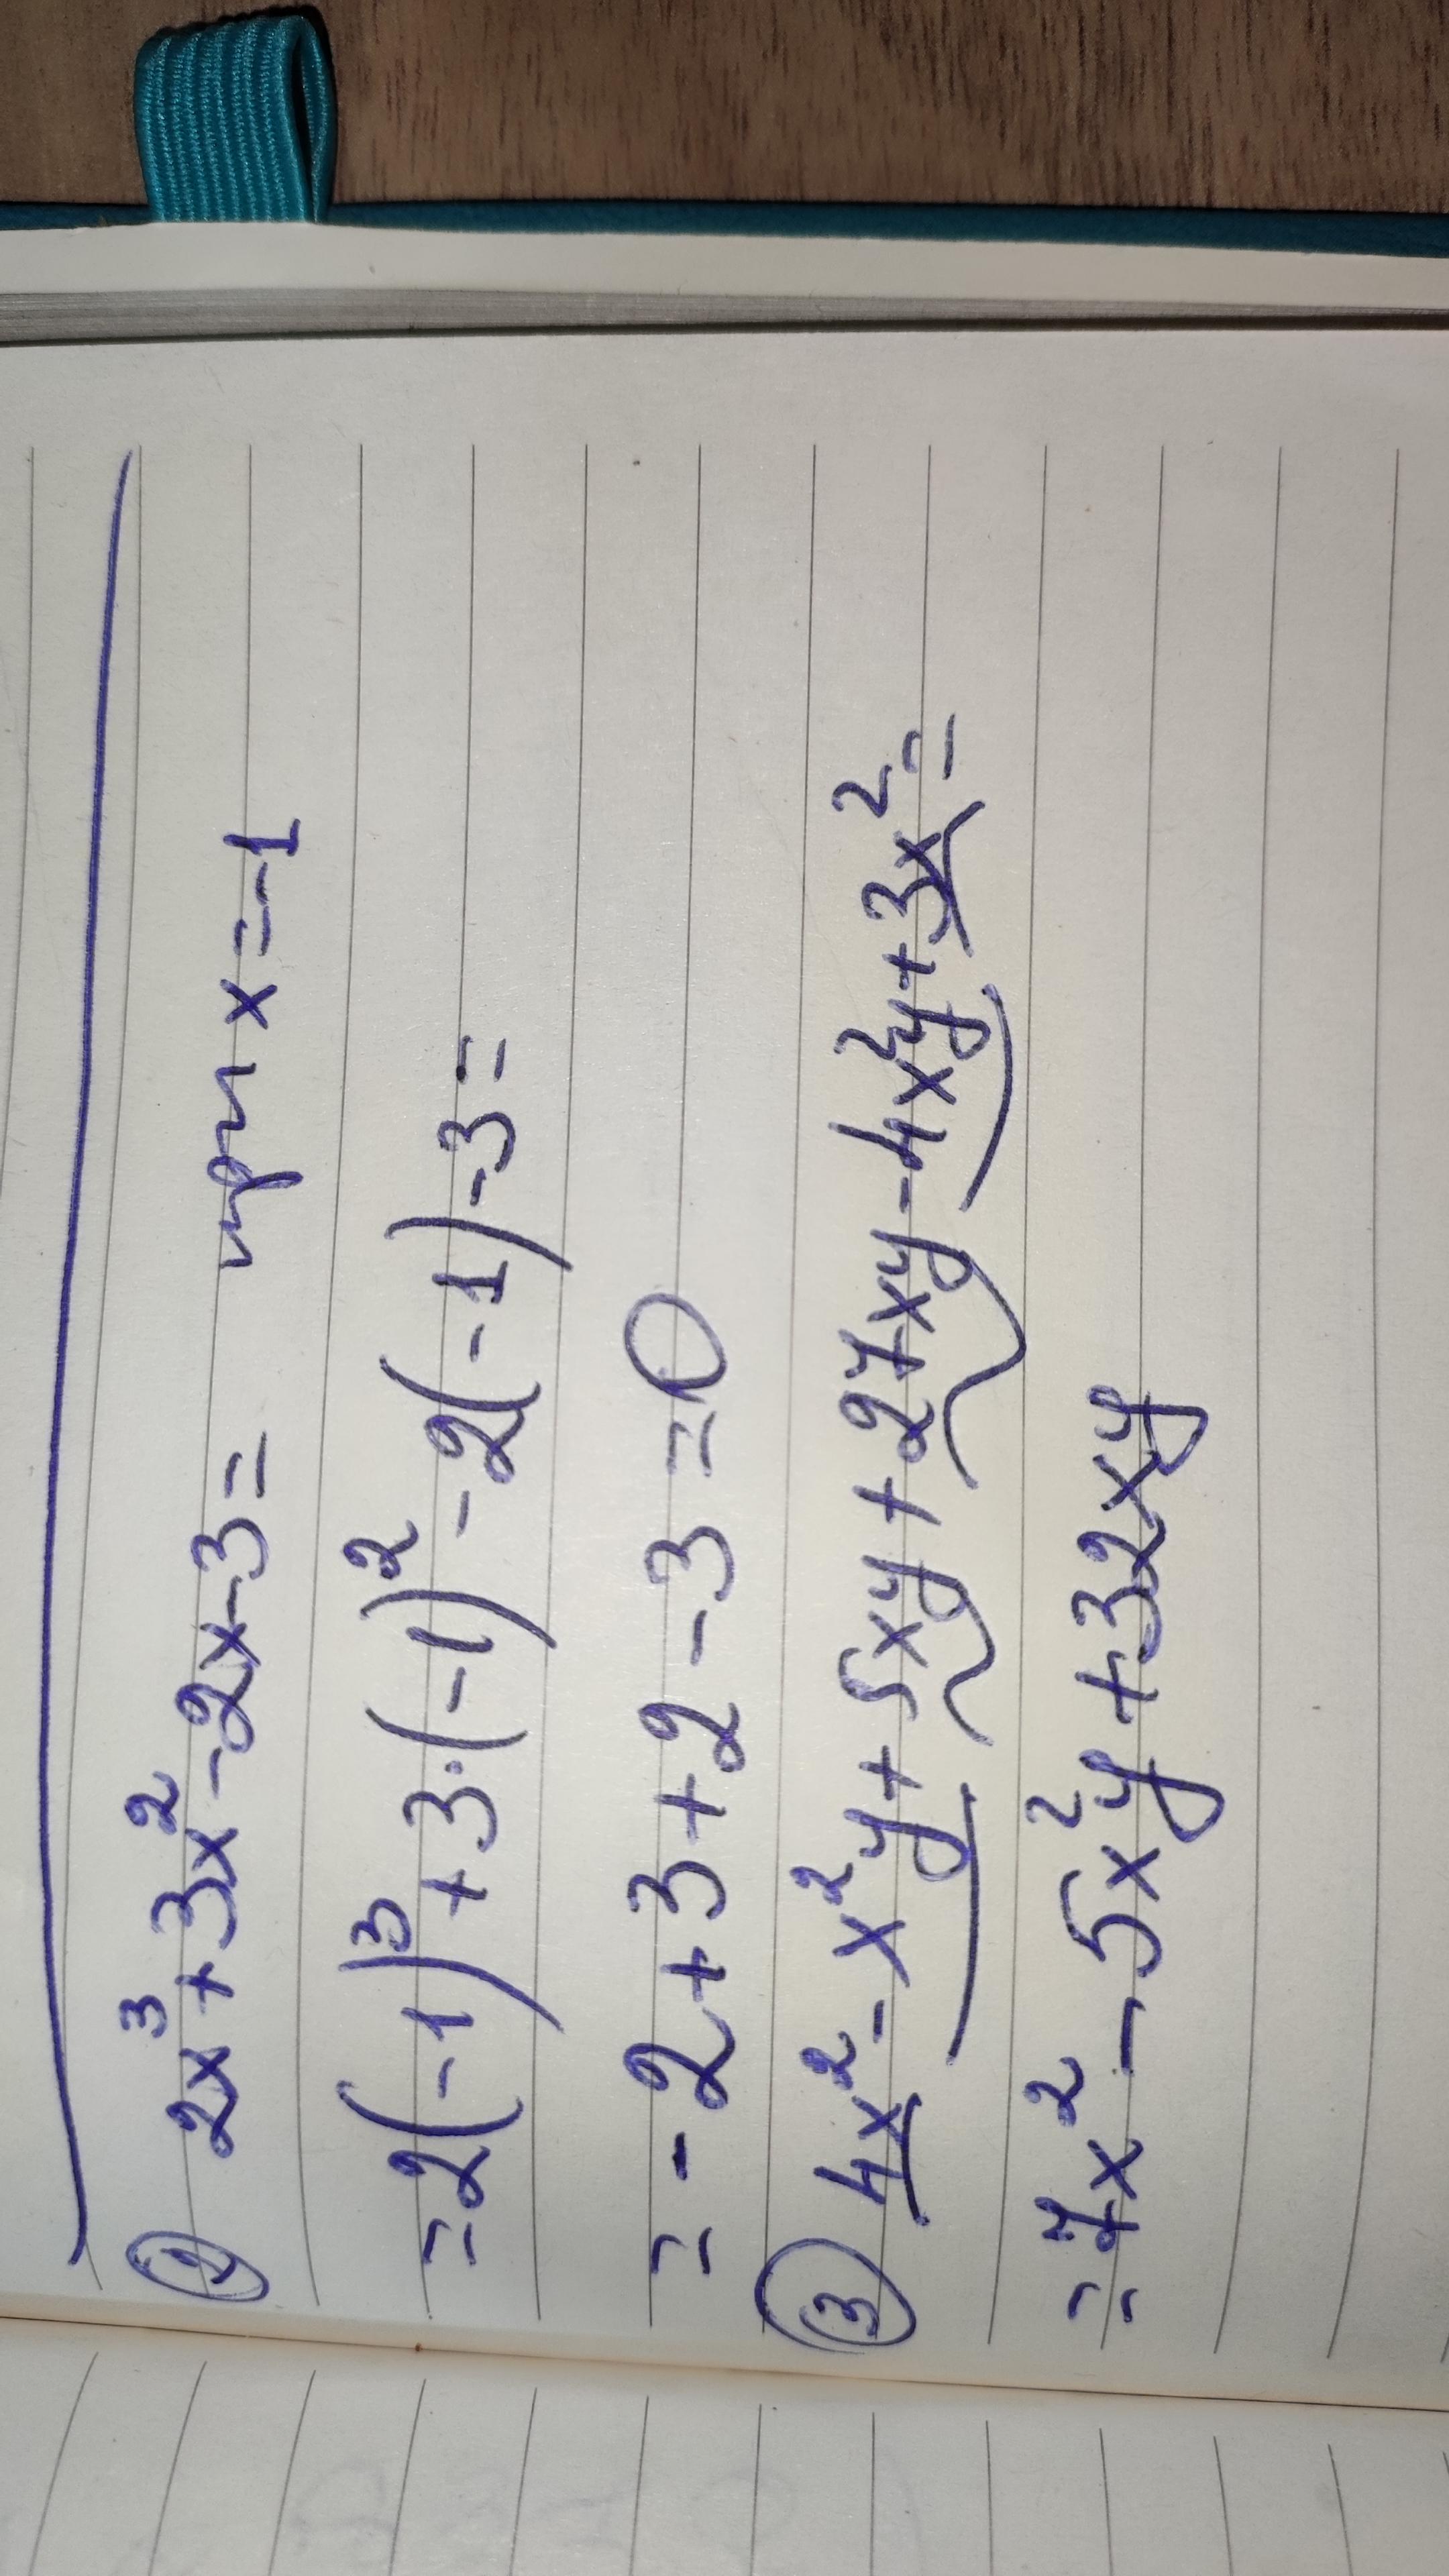 ② 2x³+3x²-2x-3= при x=-1
=2(-1)³+3·(-1)²-2(-1)-3=
=-2+3+2-3=0
③ 4x²-x²y+5xy+27xy-4x²y+3x²=
=7x²-5x²y+32xy